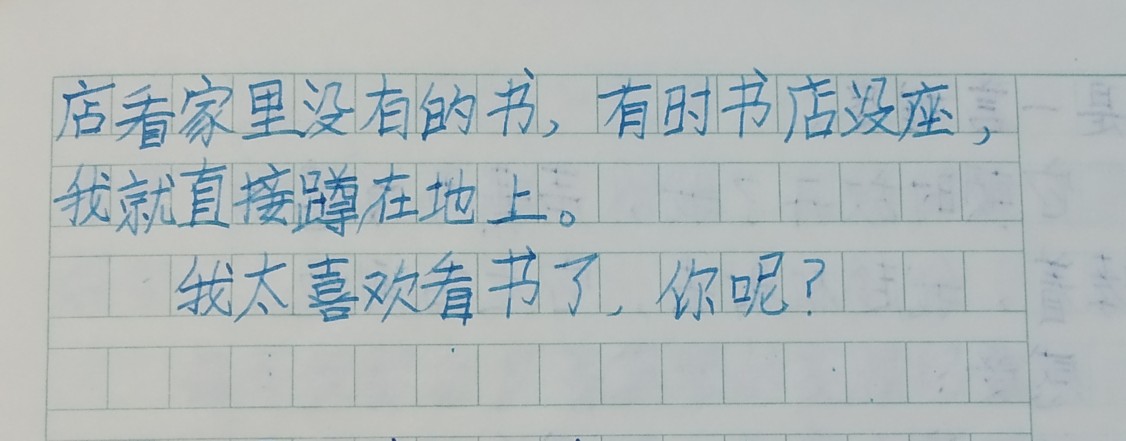 店看家里没有的书，有时书店没座，
我就直接蹲在地上。
我太喜欢看书了，你呢？